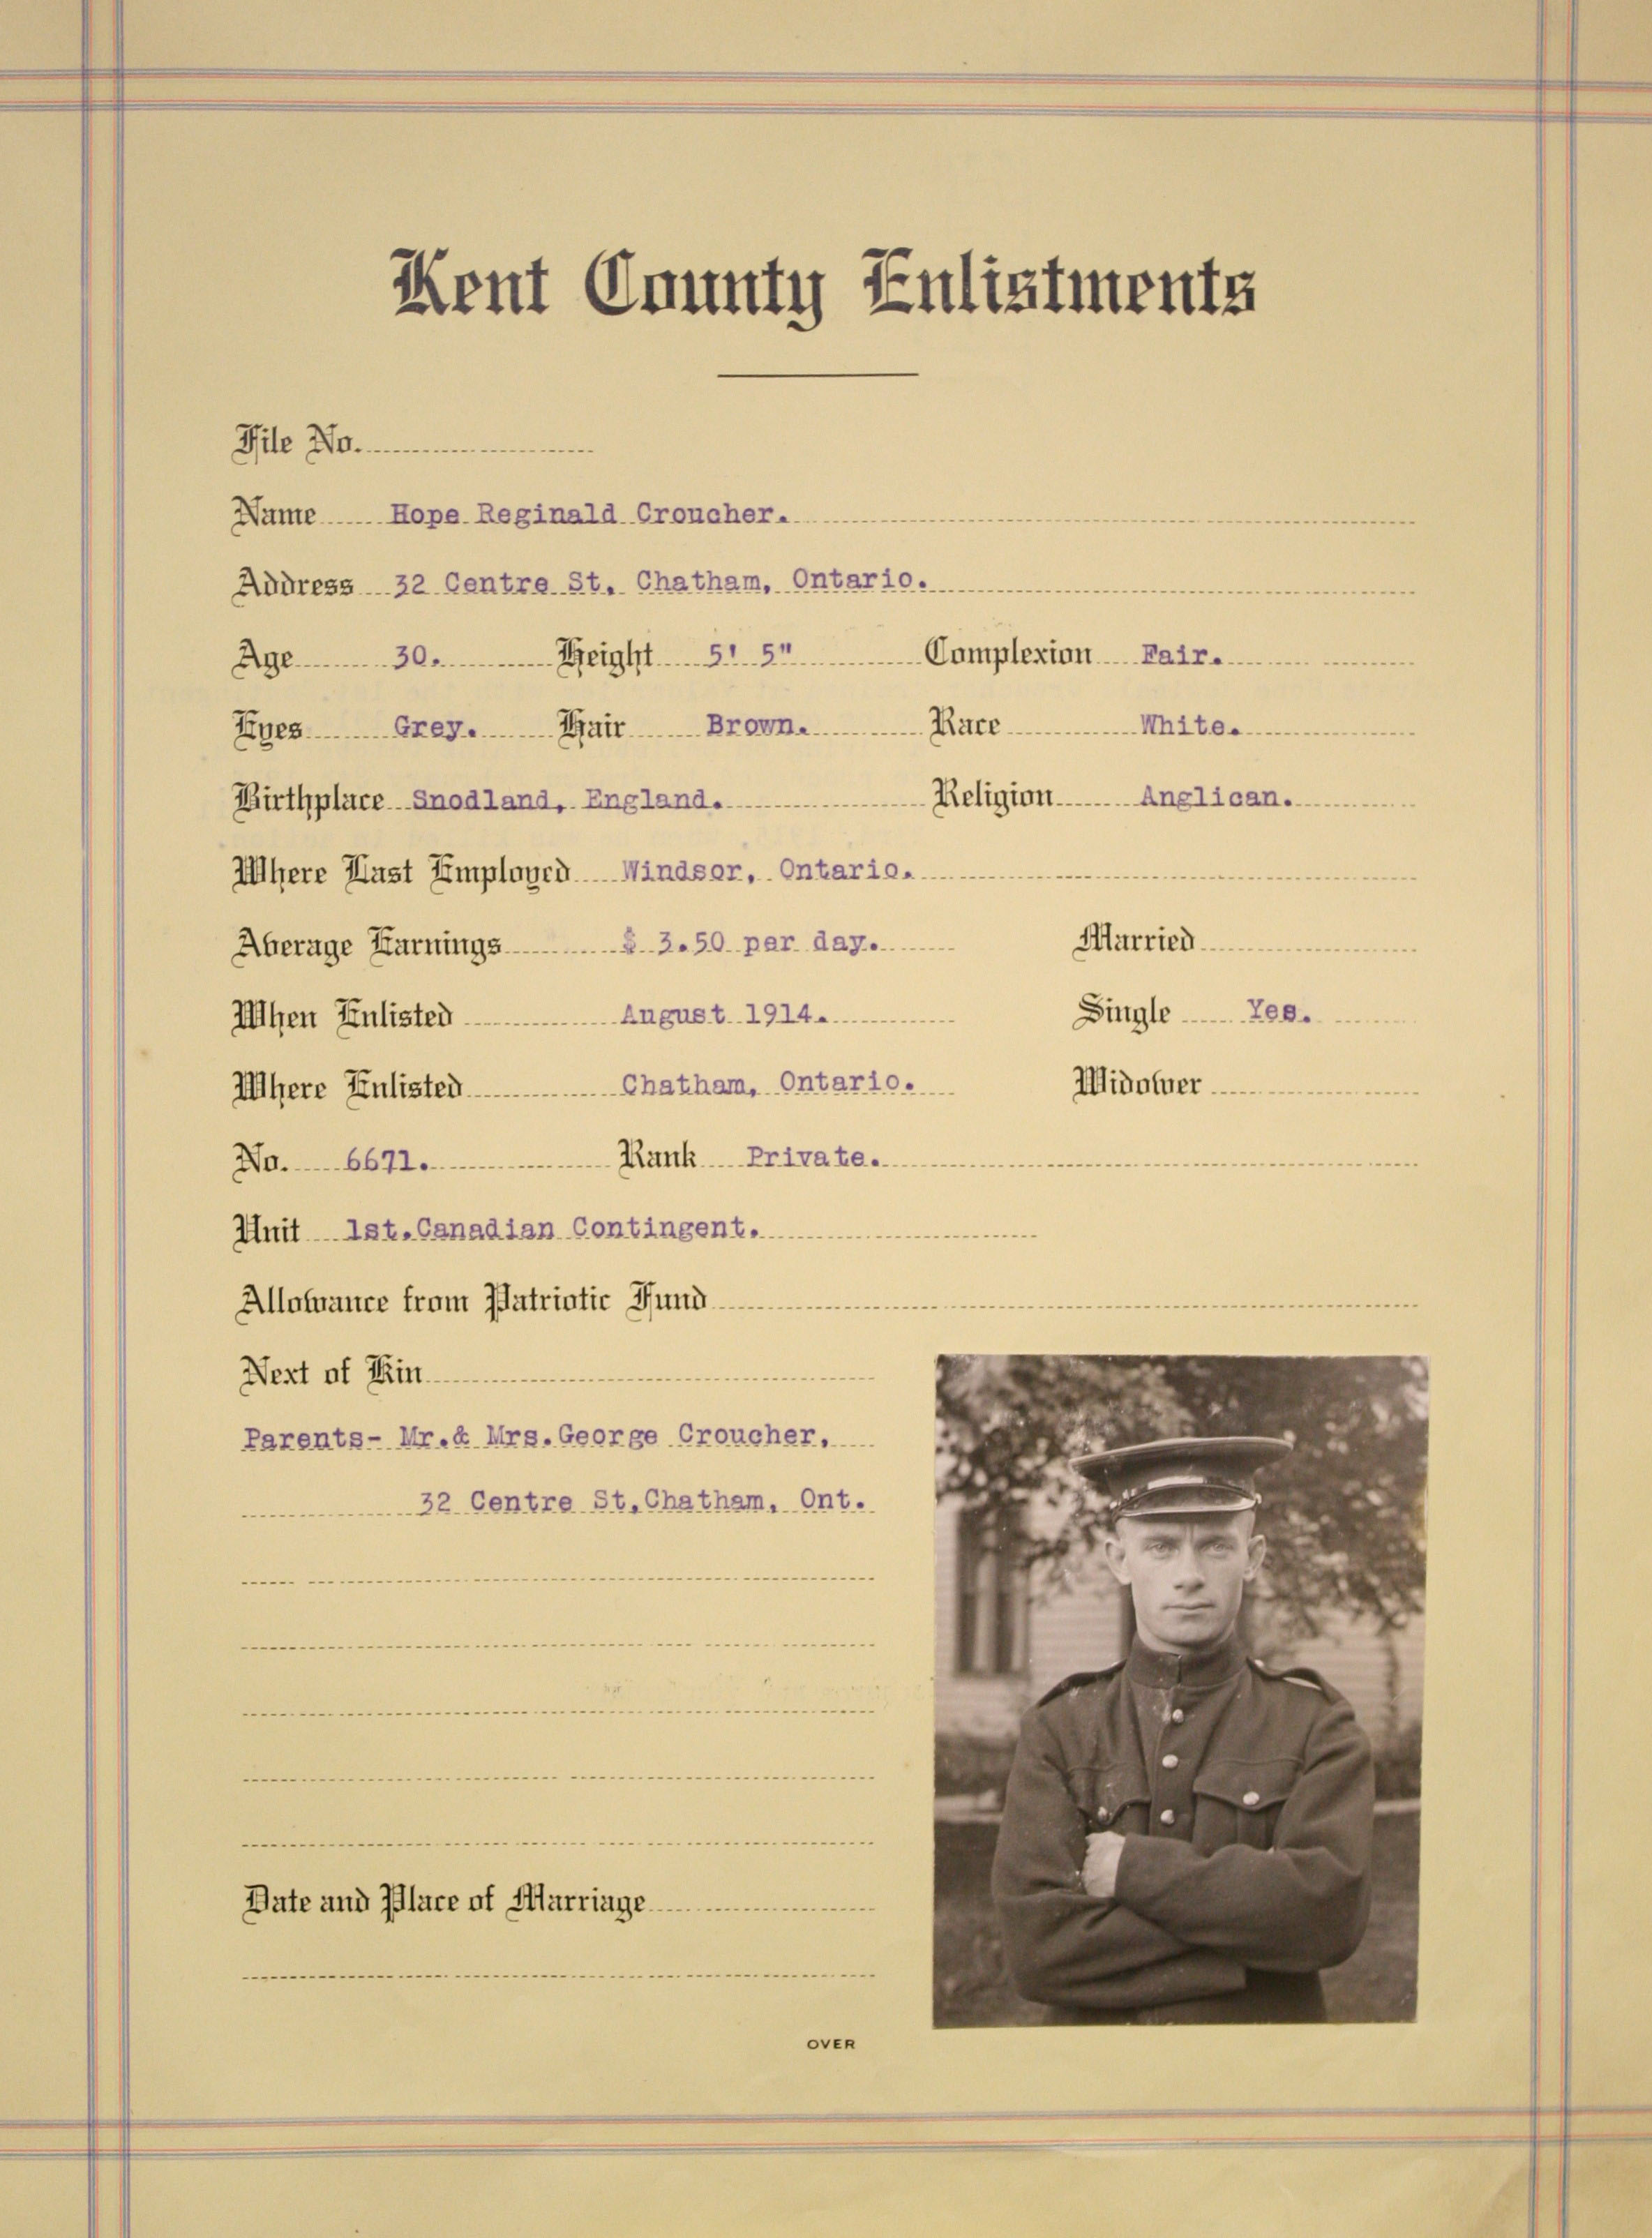 Kent County Enlistments
File No.
Name Hope Reginald Croucher.
Address 32 Centre St, Chatham, Ontario.
Age 30. Height 5' 5" Complexion Fair.
Eyes Grey. Hair Brown. Race White.
Birthplace Snodland, England. Religion Anglican.
Where Last Employed Windsor, Ontario.
Average Earnings $ 3.50 per day. Married
When Enlisted August 1914. Single Yes.
Where Enlisted Chatham, Ontario. Widower
No. 6671. Rank Private.
Unit 1st.Canadian Contingent.
Allowance from Patriotic Fund
Next of Kin
Parents- Mr.& Mrs.George Croucher,
32 Centre St,Chatham, Ont.
Date and Place of Marriage
OVER